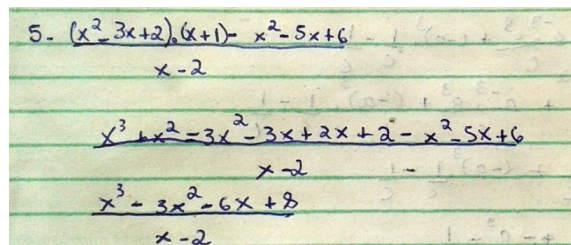 5- (x²-3x+2).(x+1)- x²-5x+6
x-2
x³+x²-3x²-3x+2x+2-x²-5x+6
x-2
x³-3x²-6x+8
x-2